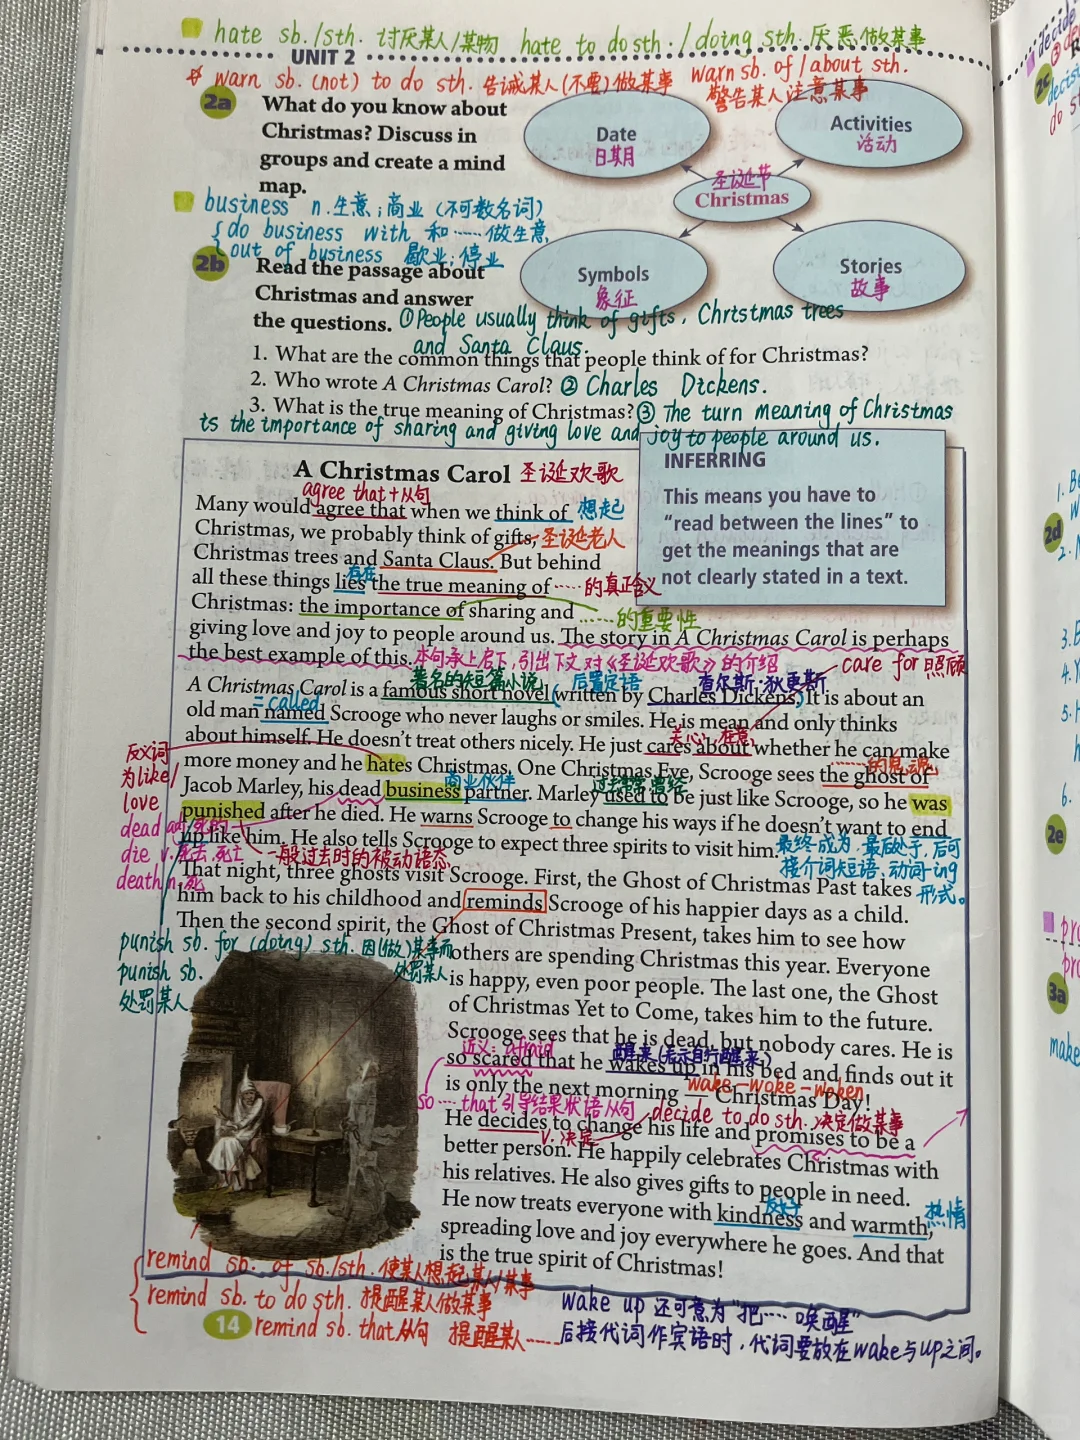 hate sb./sth. 讨厌某人/某物 hate to do sth. / doing sth. 厌恶做某事
UNIT 2
☆ warn sb. (not) to do sth. 告诫某人(不要)做某事 warn sb. of / about sth.
警告某人注意某事
2a What do you know about
Christmas? Discuss in
groups and create a mind
map.
Date
日期
Activities
活动
圣诞节
Christmas
Symbols
象征
Stories
故事
business n.生意;商业 (不可数名词)
do business with 和……做生意
out of business 歇业;停业
2b Read the passage about
Christmas and answer
the questions. ①People usually think of gifts, Christmas trees
and Santa Claus.
1. What are the common things that people think of for Christmas?
2. Who wrote A Christmas Carol? ② Charles Dickens.
3. What is the true meaning of Christmas? ③ The turn meaning of Christmas
is the importance of sharing and giving love and joy to people around us.
INFERRING
This means you have to
“read between the lines” to
get the meanings that are
not clearly stated in a text.
A Christmas Carol 圣诞欢歌
agree that+从句
Many would agree that when we think of 想起
Christmas, we probably think of gifts, 圣诞老人
Christmas trees and Santa Claus. But behind
存在
all these things lies the true meaning of ……的真正含义
Christmas: the importance of sharing and ……的重要性
giving love and joy to people around us. The story in A Christmas Carol is perhaps
the best example of this. 本句承上启下,引出下文对《圣诞欢歌》的介绍 care for 照顾
著名的短篇小说 后置定语 查尔斯·狄更斯
A Christmas Carol is a famous short novel (written by Charles Dickens.) It is about an
= called
old man named Scrooge who never laughs or smiles. He is mean and only thinks
关心;在意
about himself. He doesn't treat others nicely. He just cares about whether he can make
反义词
为like/
love
……的鬼魂
more money and he hates Christmas. One Christmas Eve, Scrooge sees the ghost of
商业伙伴 过去常常;曾经
Jacob Marley, his dead business partner. Marley used to be just like Scrooge, so he was
punished after he died. He warns Scrooge to change his ways if he doesn't want to end
dead adj.死的
die v.死去,死亡
death n.死
一般过去时的被动语态
up like him. He also tells Scrooge to expect three spirits to visit him. 最终成为,最后处于,后可
接介词短语,动词-ing
形式。
That night, three ghosts visit Scrooge. First, the Ghost of Christmas Past takes
him back to his childhood and reminds Scrooge of his happier days as a child.
Then the second spirit, the Ghost of Christmas Present, takes him to see how
punish sb. for (doing) sth. 因(做)某事而
处罚某人
punish sb.
处罚某人
others are spending Christmas this year. Everyone
is happy, even poor people. The last one, the Ghost
of Christmas Yet to Come, takes him to the future.
Scrooge sees that he is dead, but nobody cares. He is
近义: afraid 醒来(表示自行醒来)
so scared that he wakes up in his bed and finds out it
wake-woke-woken
is only the next morning — Christmas Day!
so…that引导结果状语从句 decide to do sth. 决定做某事
He decides to change his life and promises to be a
v.决定
better person. He happily celebrates Christmas with
his relatives. He also gives gifts to people in need.
友好
He now treats everyone with kindness and warmth, 热情
spreading love and joy everywhere he goes. And that
is the true spirit of Christmas!
remind sb. of sb./sth. 使某人想起某人/某事
remind sb. to do sth. 提醒某人做某事
remind sb. that从句 提醒某人……
14
wake up 还可意为“把……唤醒”
后接代词作宾语时,代词要放在wake与up之间。
decide
2c
do
1. Be
2d
2.
3. E
4. Y
5. H
6.
2e
3a
make